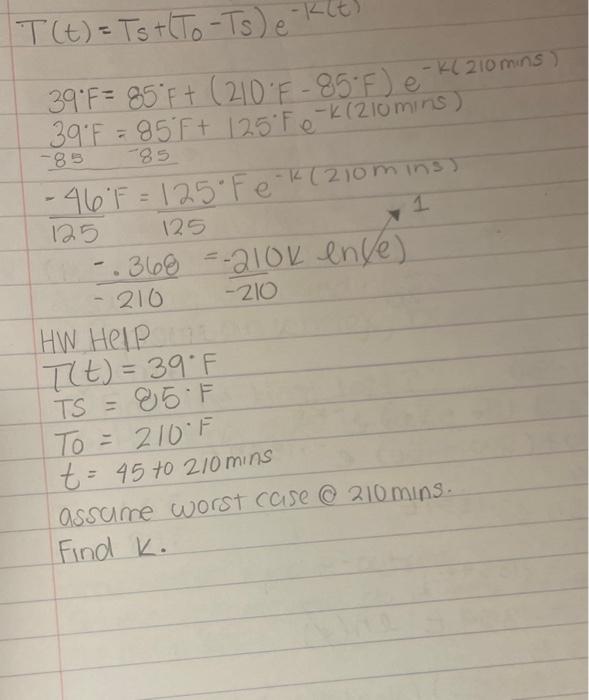 T(t) = Ts+(To-Ts)e^-k(t)
39°F = 85°F+ (210°F - 85°F) e^-k(210mins)
39°F = 85°F+ 125°Fe^-k(210mins)
-85 -85
-46°F = 125°Fe^-k(210mins)
125 125
1
-.368 = -210k en(e)
-210 -210
HW Help
T(t) = 39°F
TS = 85°F
To = 210°F
t = 45 to 210mins
assume worst case @ 210mins.
Find K.